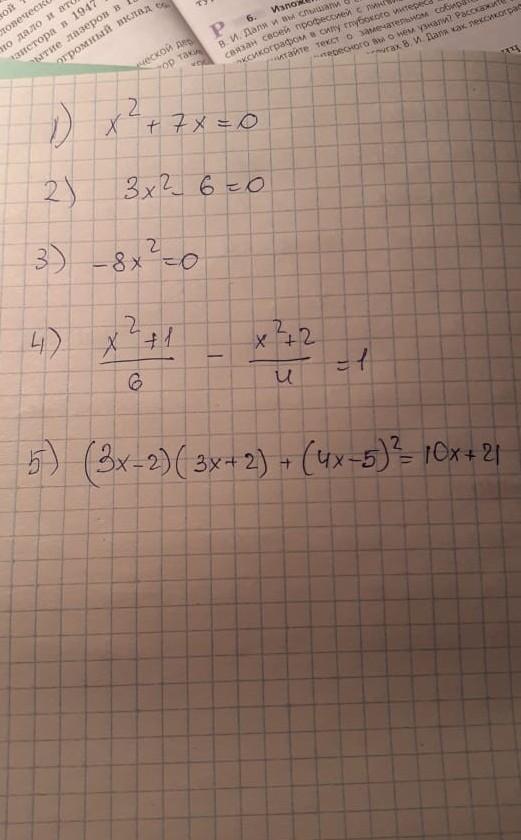 ловеческо
но дало и вто
нзистора в 1947
рытие лазеров в 19
огромный вклад
ической дер
тор такие
Р 6. Излож
В. И. Даля и вы слышали о
связан своей профессией с лингви
лексикографом в силу глубокого интереса
читайте текст о замечательном собират
нтересного вы о нём узнали? Расскажите
В. И. Даля как лексикограф
1) x² + 7x = 0
2) 3x² - 6 = 0
3) -8x² = 0
4) (x² + 1)/6 - (x² + 2)/4 = 1
5) (3x-2)(3x+2) + (4x-5)² = 10x + 21